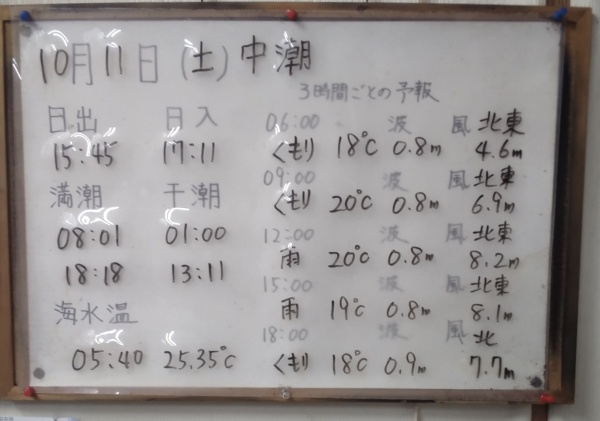 10月11日(土)中潮
3時間ごとの予報
日出 日入
15:45 17:11
満潮 干潮
08:01 01:00
18:18 13:11
海水温
05:40 25.35℃
06:00 波 風 北東
くもり 18℃ 0.8m 4.6m
09:00 波 風 北東
くもり 20℃ 0.8m 6.9m
12:00 波 風 北東
雨 20℃ 0.8m 8.2m
15:00 波 風 北東
雨 19℃ 0.8m 8.1m
18:00 波 風 北
くもり 18℃ 0.9m 7.7m